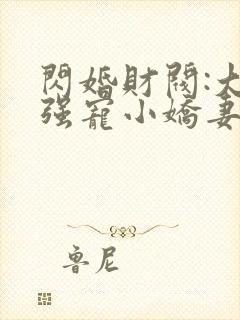 閃婚財閥:大
强寵小嬌妻
魯尼